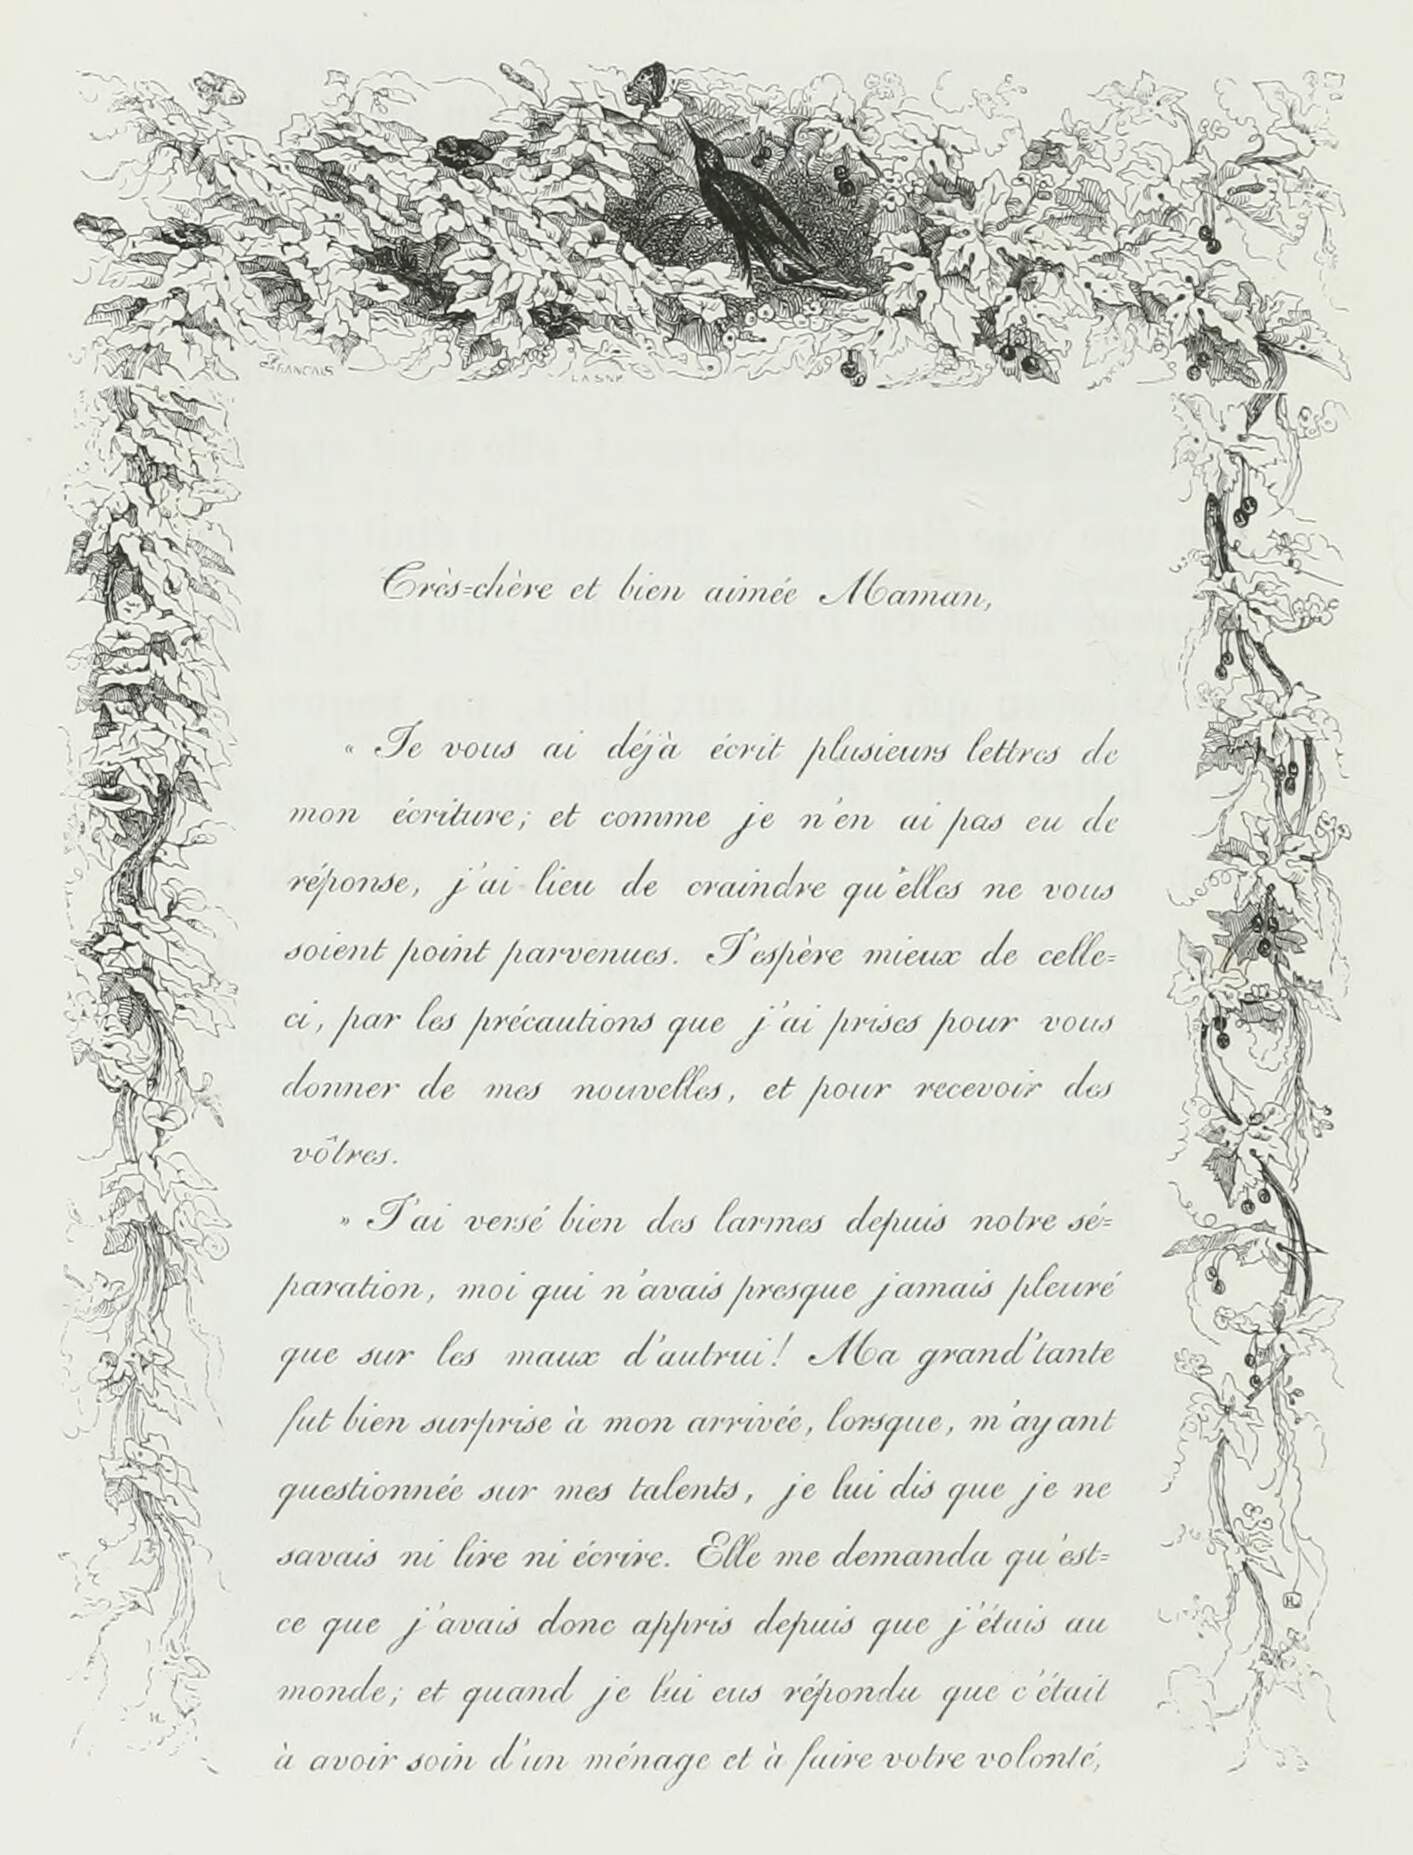 FRANCAIS
LASNE
Très=chère et bien aimée Maman,
« Je vous ai déjà écrit plusieurs lettres de
mon écriture; et comme je n'en ai pas eu de
réponse, j'ai lieu de craindre qu'elles ne vous
soient point parvenues. J'espère mieux de celle=
ci, par les précautions que j'ai prises pour vous
donner de mes nouvelles, et pour recevoir des
vôtres.
» J'ai versé bien des larmes depuis notre sé=
paration, moi qui n'avais presque jamais pleuré
que sur les maux d'autrui! Ma grand'tante
fut bien surprise à mon arrivée, lorsque, m'ayant
questionnée sur mes talents, je lui dis que je ne
savais ni lire ni écrire. Elle me demanda qu'est=
ce que j'avais donc appris depuis que j'étais au
monde; et quand je lui eus répondu que c'était
à avoir soin d'un ménage et à faire votre volonté,
HL